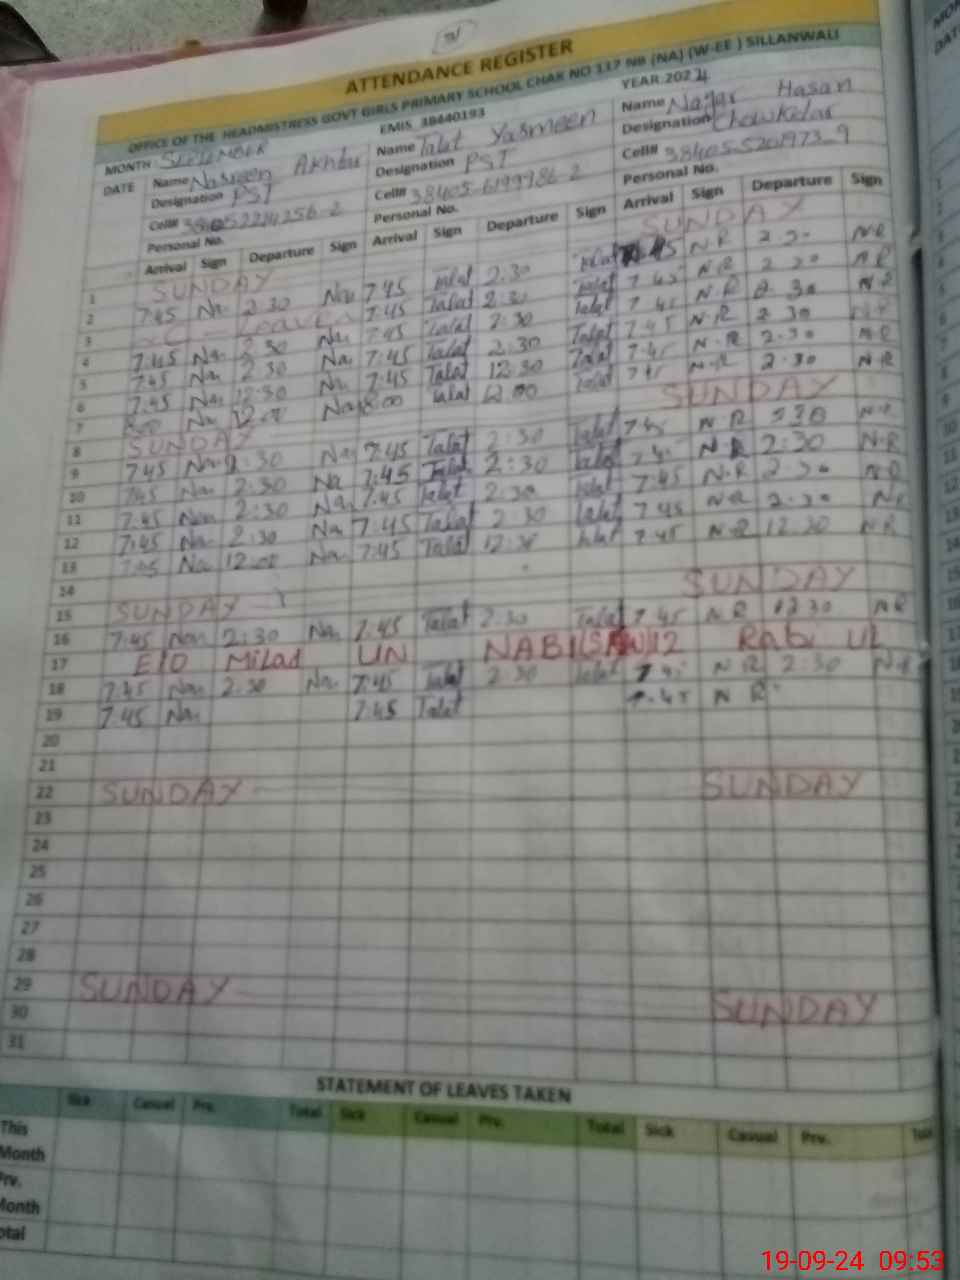 ATTENDANCE REGISTER
OFFICE OF THE HEADMISTRESS GOVT GIRLS PRIMARY SCHOOL CHAK NO 137 NB (NA) (W-EE ) SILLANWALI
MONTH SEPTEMBER EMIS 38440193 YEAR 2024
DATE Name Nasreen Akhtar Name Talat Yasmeen Name Hasan
Designation PST Designation PST Designation Chowkidar
Cell# Cell# 38405-6199986-2 Cell# 38405-5201973-9
Personal No. Personal No. Personal No.
Arrival Sign Departure Sign Arrival Sign Departure Sign Arrival Sign Departure Sign
1 SUNDAY SUNDAY
2 7:45 Na 2:30 Na 7:45 Talat 2:30 Talat 7:45 N.R 2:30 N.R
3 C-Leave 7:45 Talat 2:30 Talat 7:45 N.R 2:30 N.R
4 7:45 Na 2:30 Na 7:45 Talat 2:30 Talat 7:45 N.R 2:30 N.R
5 7:45 Na 2:30 Na 7:45 Talat 2:30 Talat 7:45 N.R 2:30 N.R
6 7:45 Na 12:30 Na 7:45 Talat 12:30 Talat 7:45 N.R 2:30 N.R
7 8:00 Na 12:00 Na 8:00 Talat 12:00 Talat 7:45 N.R 2:30 N.R
8 SUNDAY SUNDAY
9 7:45 Na 2:30 Na 7:45 Talat 2:30 Talat 7:45 N.R 2:30 N.R
10 7:45 Na 2:30 Na 7:45 Talat 2:30 Talat 7:45 N.R 2:30 N.R
11 7:45 Na 2:30 Na 7:45 Talat 2:30 Talat 7:45 N.R 2:30 N.R
12 7:45 Na 2:30 Na 7:45 Talat 2:30 Talat 7:45 N.R 2:30 N.R
13 7:45 Na 12:00 Na 7:45 Talat 12:30 Talat 7:45 N.R 12:30 N.R
14
15 SUNDAY SUNDAY
16 7:45 Na 2:30 Na 7:45 Talat 2:30 Talat 7:45 N.R 2:30 N.R
17 EID Milad UN NABI(SAW)12 Rabi UL
18 7:45 Na 2:30 Na 7:45 Talat 2:30 Talat 7:45 N.R 2:30 N.R
19 7:45 Na 7:45 Talat 7:45 N.R
20
21
22 SUNDAY SUNDAY
23
24
25
26
27
28
29 SUNDAY SUNDAY
30
31
STATEMENT OF LEAVES TAKEN
Sick Casual Prv. Total Sick Casual Prv. Total Sick Casual Prv.
This
Month
Prv.
Month
otal
19-09-24 09:53